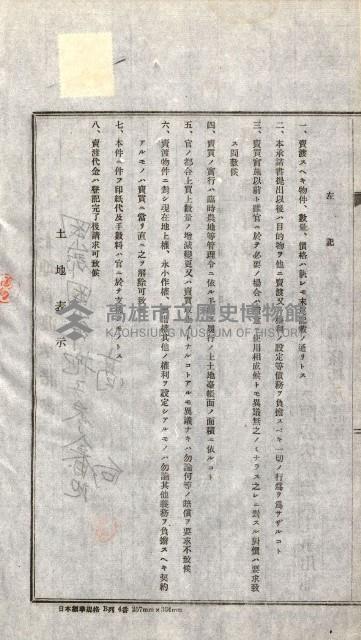 左記
一、賣渡スヘキ物件、數量、價格ハ執レモ末記載ノ通リトス
二、本承諾書提出以後ハ目的物ヲ他ニ賣渡又ハ權利ノ設定等債務ヲ負擔スヘキ一切ノ行爲ヲ爲サザルコト
三、賣買實施以前ト雖官ニ於テ必要ノ場合ハ使用相成候トモ異議無之ノミナラス之レニ對スル對價ハ要求致
ス間敷候
四、賣買ノ實行ハ臨時農地等管理令ニ依ル
土地臺帳面ノ面積ニ依ルコト
五、官ノ都合上買上數量ノ增減變更又ハ賣買取
トナルコトアルモ異議ナキハ勿論何等ノ賠償ヲ要求不致候
六、賣渡物件ニ對シ現在地上權、永小作權、
其他ノ權利ヲ設定シアルモノハ勿論其他義務ヲ負擔スヘキ契約
アルモノハ賣買ニ當リ直ニ之ヲ解除可致候
七、本件ニ伴フ印紙代及手數料ハ官ニ於テ支
トス
八、賣渡代金ハ登記完了後請求可致候
土地表示
高雄市立歷史博物館
KAOHSIUNG MUSEUM OF HISTORY
日本標準規格 B列 4番 257mm×364mm